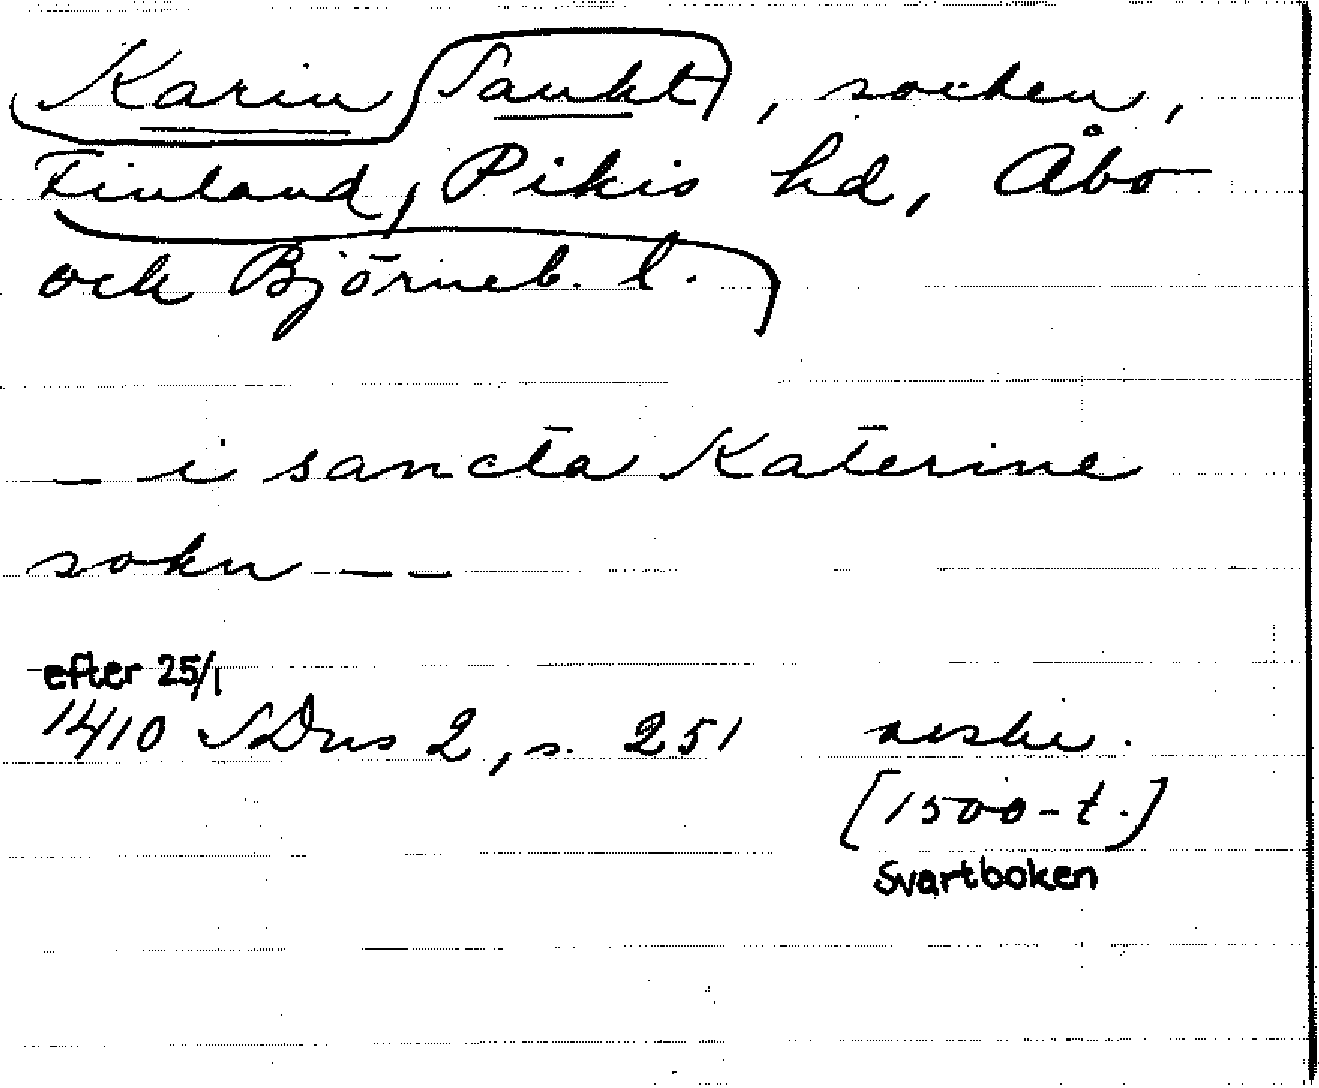 Karin Sankt, socken,
Finland, Pikis hd, Åbo
och Björneb. l.
_ i sancta Katerine
sokn _ _
efter 25/1
1410 SDns 2, s. 251 avskr.
[1500-t.]
Svartboken